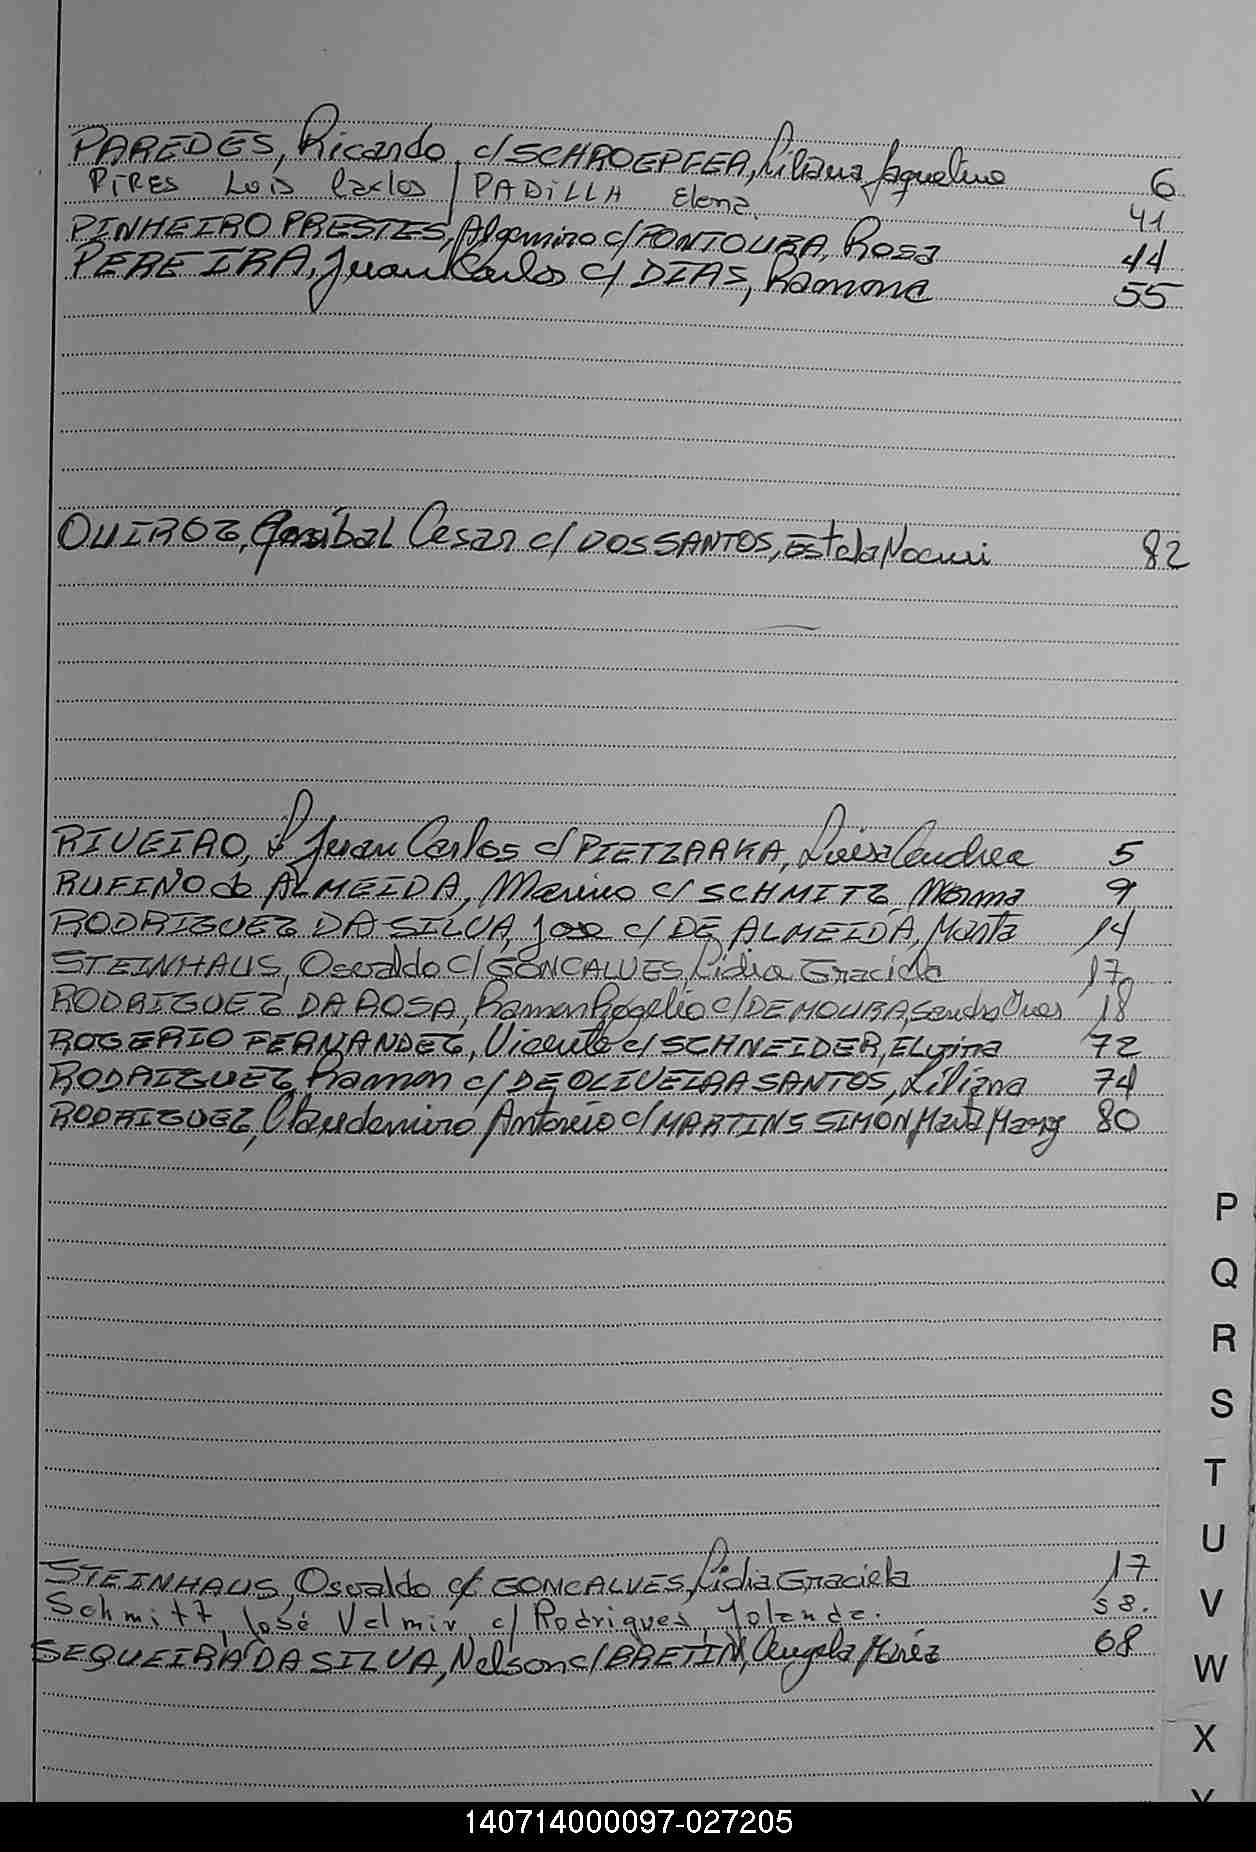 PAREDES, Ricardo c/ SCHROEPFER, Liliana Jaqueline 6
PIRES Luis Carlos / PADILLA Elena 41
PINHEIRO PRESTES, Algemiro c/ FONTOURA, Rosa 44
PEREIRA, Juan Carlos c/ DIAS, Ramona 55
QUIROZ, Anibal Cesar c/ DOS SANTOS, Estela Noemi 82
RIVEIRO, Juan Carlos c/ PIETZARKA, Luisa Andrea 5
RUFINO de ALMEIDA, Marino c/ SCHMITZ, Norma 9
RODRIGUEZ DA SILVA, Jose c/ DE ALMEIDA, Marta 14
STEINHAUS, Osvaldo c/ GONCALVES, Lidia Graciela 17
RODRIGUEZ DA ROSA, Ramon Rogelio c/ DE MOURA, Sandra Ines 18
ROGERIO FERNANDEZ, Vicente c/ SCHNEIDER, Elvira 72
RODRIGUEZ, Ramon c/ DE OLIVEIRA SANTOS, Liliana 74
RODRIGUEZ, Claudemiro Antonio c/ MARTINS SIMON, Marta 80
P
Q
R
S
T
U
V
W
X
Y
STEINHAUS, Osvaldo c/ GONCALVES, Lidia Graciela 17
Schmitz, José Velmir c/ Rodrigues, Yolanda. 58.
SEQUEIRA DA SILVA, Nelson c/ BRETIN, Angela 68
140714000097-027205